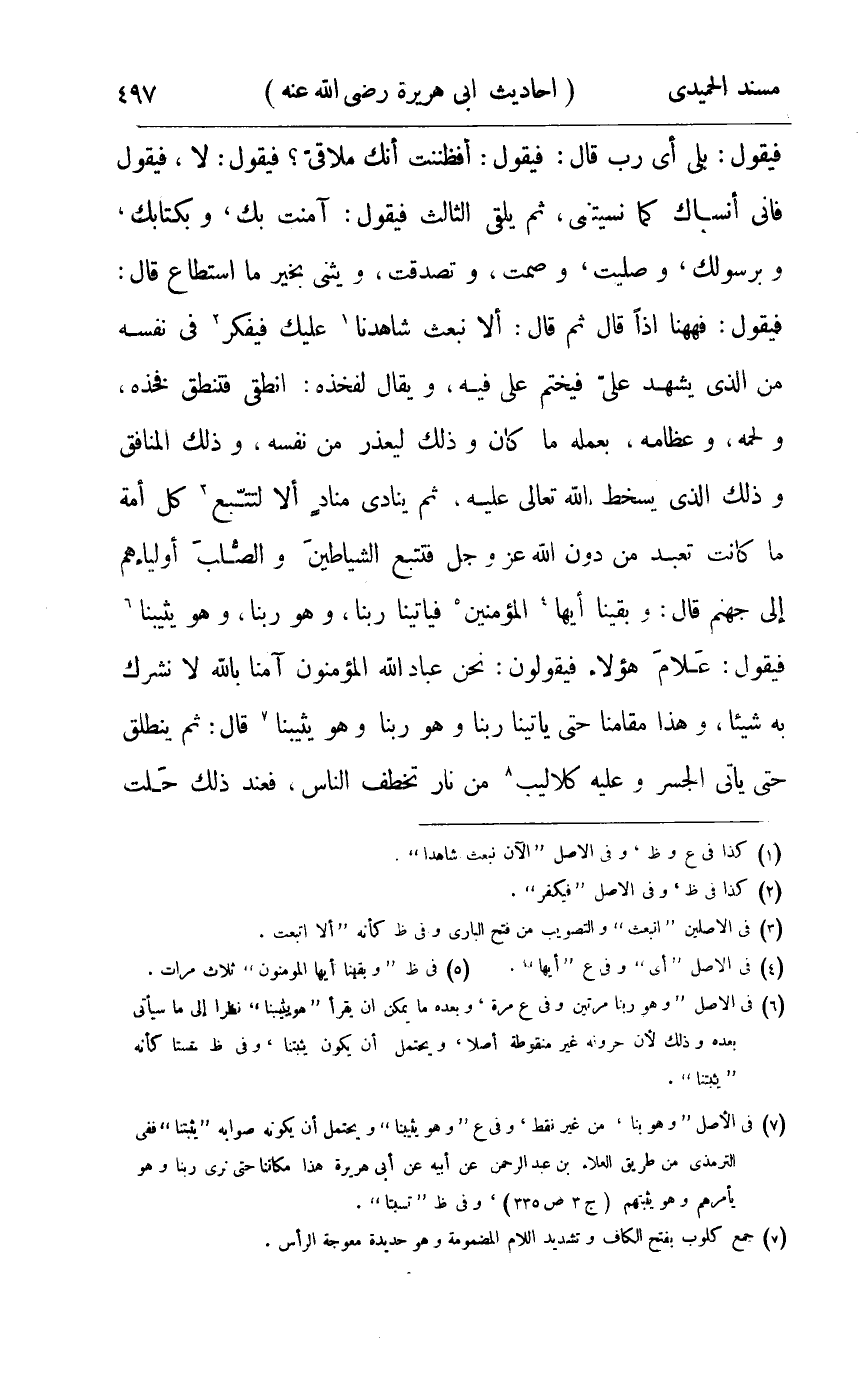 مسند الحميدى ( احاديث ابى هريرة رضى الله عنه ) ٤٩٧
فيقول : بلى أى رب قال : فيقول : أفظننت أنك ملاقىّ ؟ فيقول : لا ، فيقول
فانى أنساك كما نسيتنى ، ثم يلقى الثالث فيقول : آمنت بك ، و بكتابك ،
و برسولك ، و صليت ، و صمت ، و تصدقت ، و يثنى بخير ما استطاع قال :
فيقول : فههنا اذاً قال ثم قال : ألا نبعث شاهدنا ١ عليك فيفكر ٢ فى نفسه
من الذى يشهد علىّ فيختم على فيه ، و يقال لفخذه : انطقى فتنطق فخذه ،
و لحمه ، و عظامه ، بعمله ما كان و ذلك ليعذر من نفسه ، و ذلك المنافق
و ذلك الذى يسخط الله تعالى عليه ، ثم ينادى منادٍ ألا لتتّبع ٣ كل أمة
ما كانت تعبد من دون الله عز و جل فتتبع الشياطينَ و الصُلبَ أولياءهم
إلى جهنم قال : و بقينا أيها ٤ المؤمنين ٥ فياتينا ربنا ، و هو ربنا ، و هو يثيبنا ٦
فيقول : عَلامَ هؤلاء فيقولون : نحن عباد الله المؤمنون آمنا بالله لا نشرك
به شيئا ، و هذا مقامنا حتى ياتينا ربنا و هو ربنا و هو يثيبنا ٧ قال : ثم ينطلق
حتى يأتى الجسر و عليه كلاليب ٨ من نار تخطف الناس ، فعند ذلك حَلت
(١) كذا فى ع و ظ ، و فى الاصل ”الآن نبعث شاهدا“ .
(٢) كذا فى ظ ، و فى الاصل ”فيكفر“ .
(٣) فى الاصلين ”انبعث“ و التصويب من فتح البارى و فى ظ كأنه ”ألا اتبعت .
(٤) فى الاصل ”أى“ و فى ع ”أيها“ . (٥) فى ظ ”و بقهنا أيها المومنون“ ثلاث مرات .
(٦) فى الاصل ”و هو ربنا مرتين و فى ع مرة ، و بعده ما يمكن ان يقرأ ”هويثيبنا“ نظرا إلى ما سيأتى
بعده و ذلك لأن حروفه غير منقوطة أصلا ، و يحتمل أن يكون يثبتنا ، و فى ظ كأنه
”يثبتنا“ .
(٧) فى الأصل ”و هو بنا ، من غير نقط ، و فى ع ”و هو يثيبنا“ و يحتمل أن يكونه صوابه ”يثبتنا“ ففى
الترمذى من طريق العلاء بن عبد الرحمن عن أبيه عن أبى هريرة هذا مكاننا حتى نرى ربنا و هو
يأمرهم و هو يثبتهم ( ج ٣ ص ٣٣٥ ) ، و فى ظ ”تسبتا“ .
(٧) جمع كلوب بفتح الكاف و تشديد اللام المضمومة و هو حديدة معوجة الرأس .